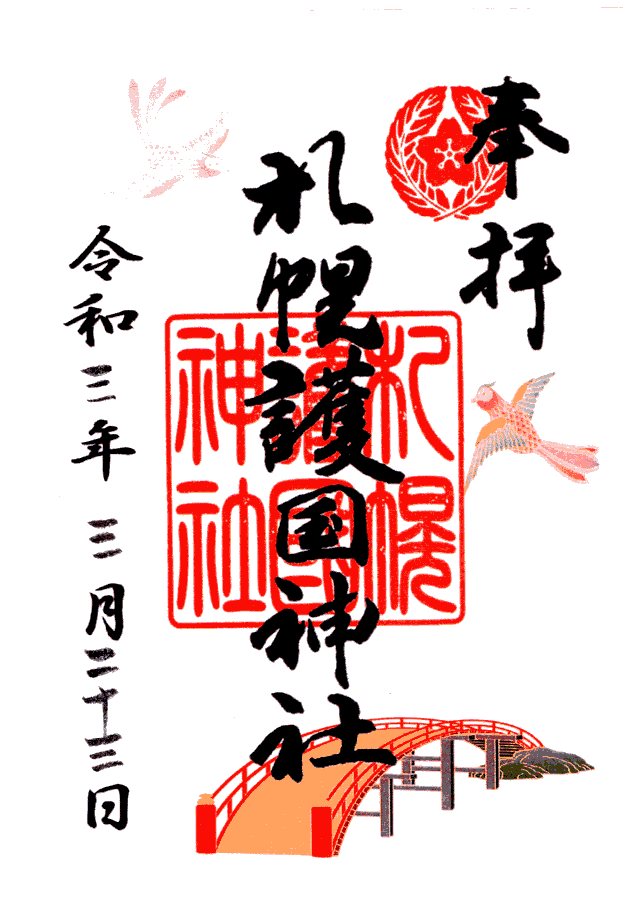 奉拝
札幌護国神社
札幌
護國
神社
令和三年三月二十三日